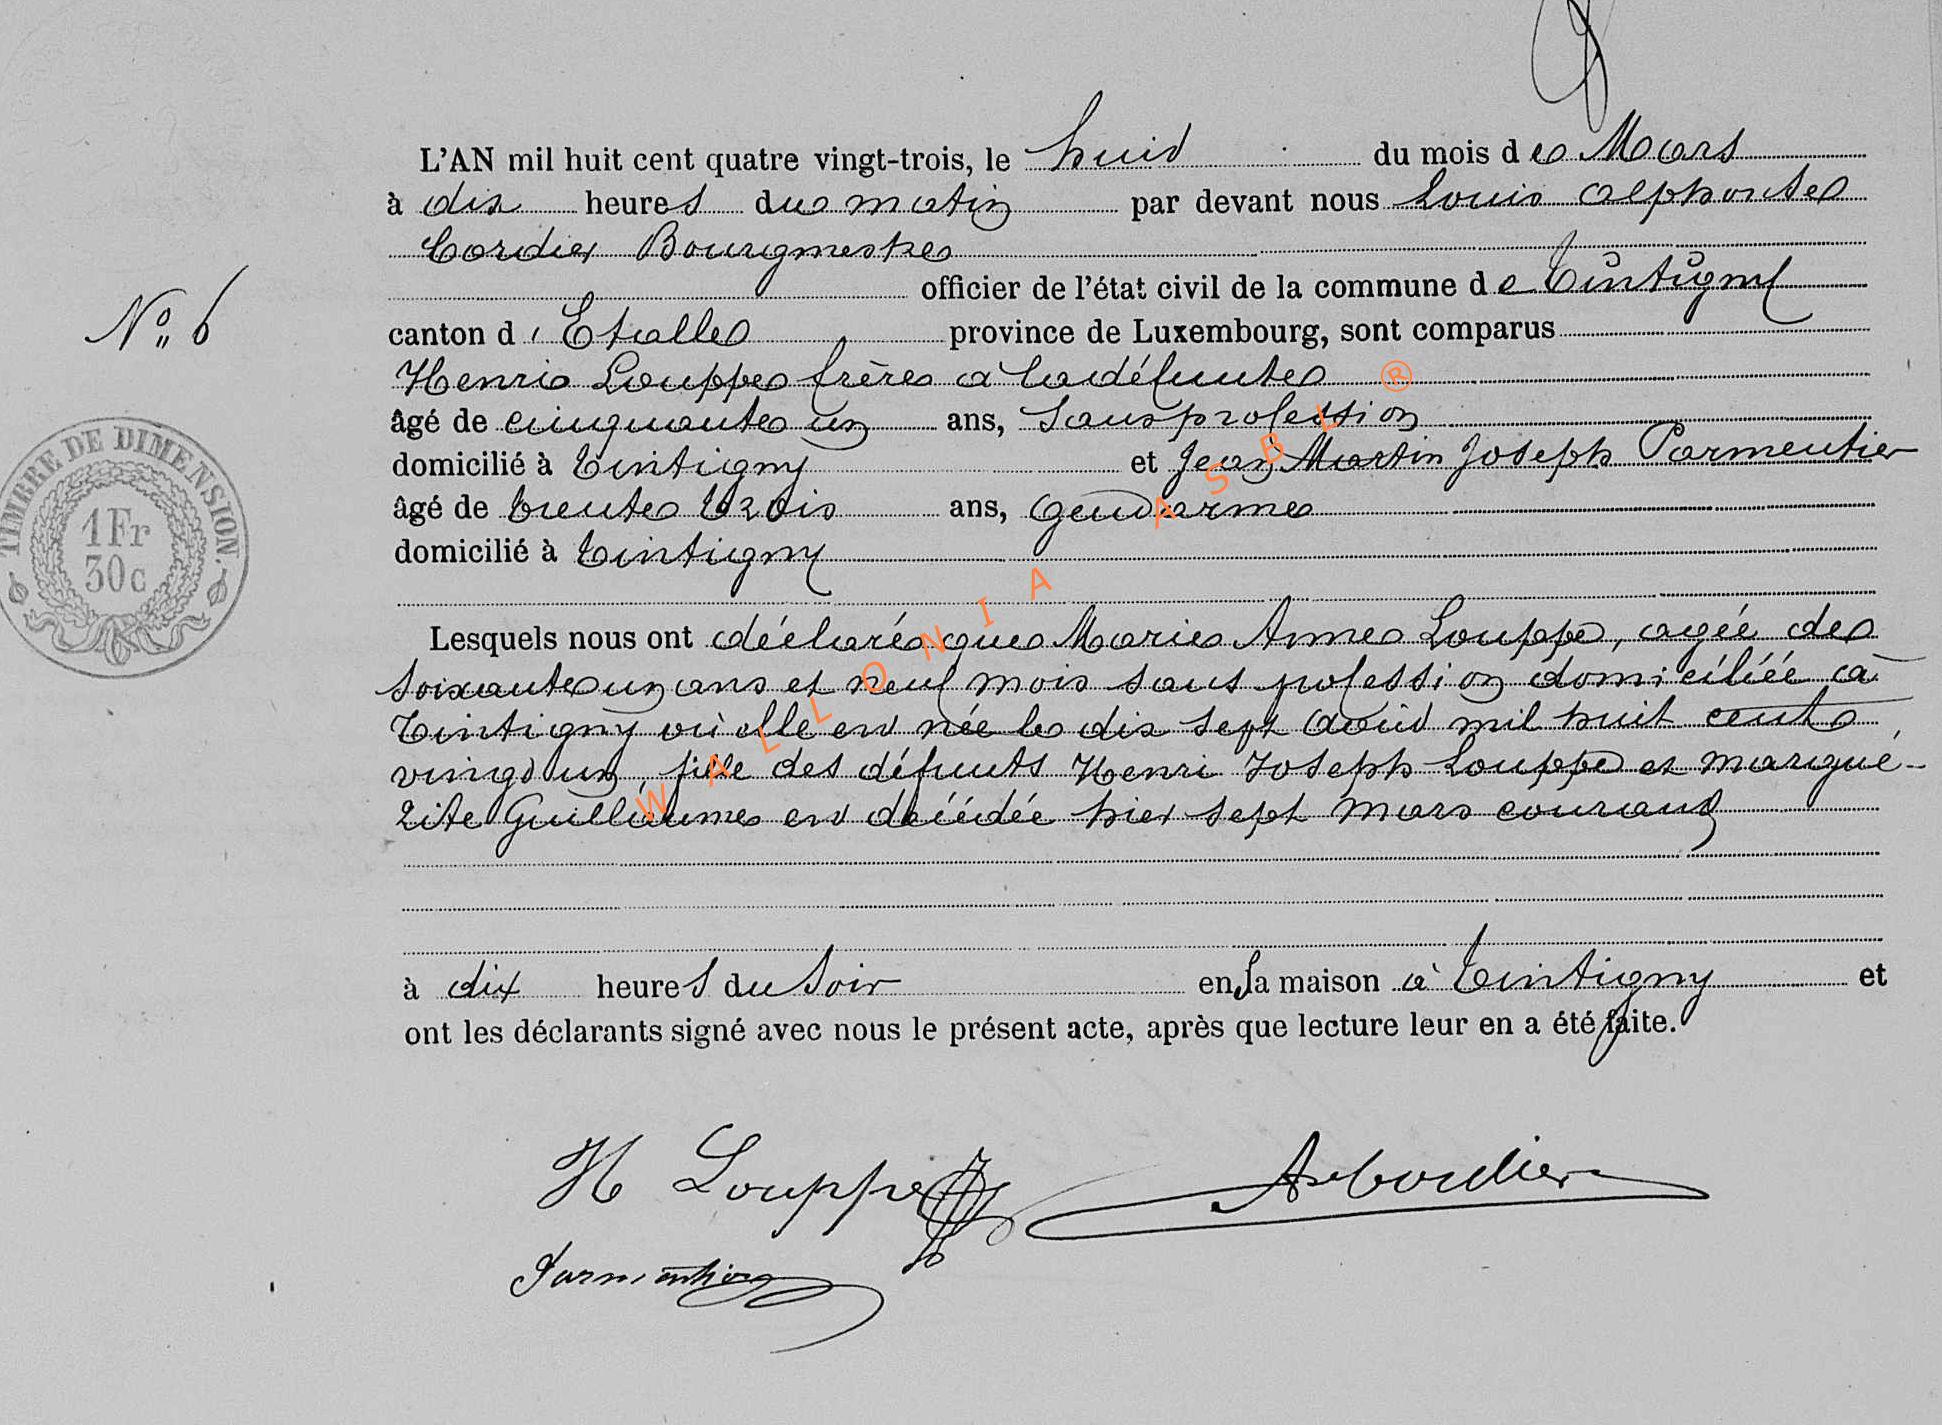 L'AN mil huit cent quatre vingt-trois, le huit du mois de Mars
à dix heures du matin par devant nous Louis Alphonse
Cordier Bourgmestre
officier de l'état civil de la commune de Tintigny
N° 6
canton d'Etalle province de Luxembourg, sont comparus
Henri Louppe frère à la défunte
âgé de cinquante un ans, sans profession
domicilié à Tintigny et Jean Martin Joseph Parmentier
âgé de trente trois ans, Gendarme
domicilié à Tintigny
TIMBRE DE DIMENSION.
1Fr
30c
Lesquels nous ont déclaré que Marie Anne Louppe, agée de
soixante un ans et neuf mois sans profession domiciliée à
Tintigny où elle est née le dix sept août mil huit cent
vingt un, fille des défunts Henri Joseph Louppe et Margué-
rite Guillaume est décédée hier sept Mars courant
à dix heures du soir en sa maison à Tintigny et
ont les déclarants signé avec nous le présent acte, après que lecture leur en a été faite.
H Louppe
A Cordier
Parmentier
WALLONIA ASBL ®